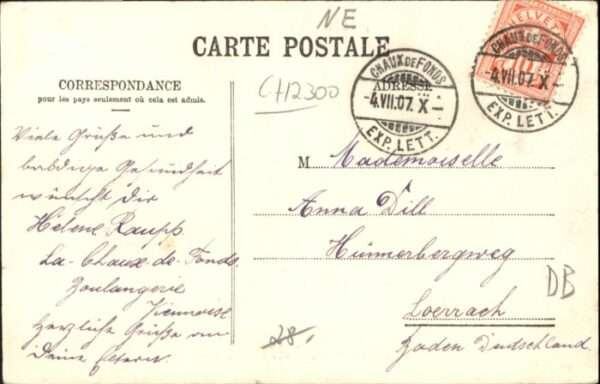 NE
CARTE POSTALE
CORRESPONDANCE
pour les pays seulement où cela est admis.
CH2300
ADRESSE
HELVETIA
10
CHAUX DE FONDS
-4.VII.07. X-
EXP. LETT.
CHAUX DE FONDS
-4.VII.07. X-
EXP. LETT.
Viele Grüße und
baldige Gesundheit
wünscht dir
Hélène Raupp
La-Chaux-de-Fonds.
Boulangerie
Viennoise
Herzliche Grüße an
Deine Eltern
M Mademoiselle
Anna Dill
Hünnerbergweg
Loerrach
Baden Deutschland
DB
28.